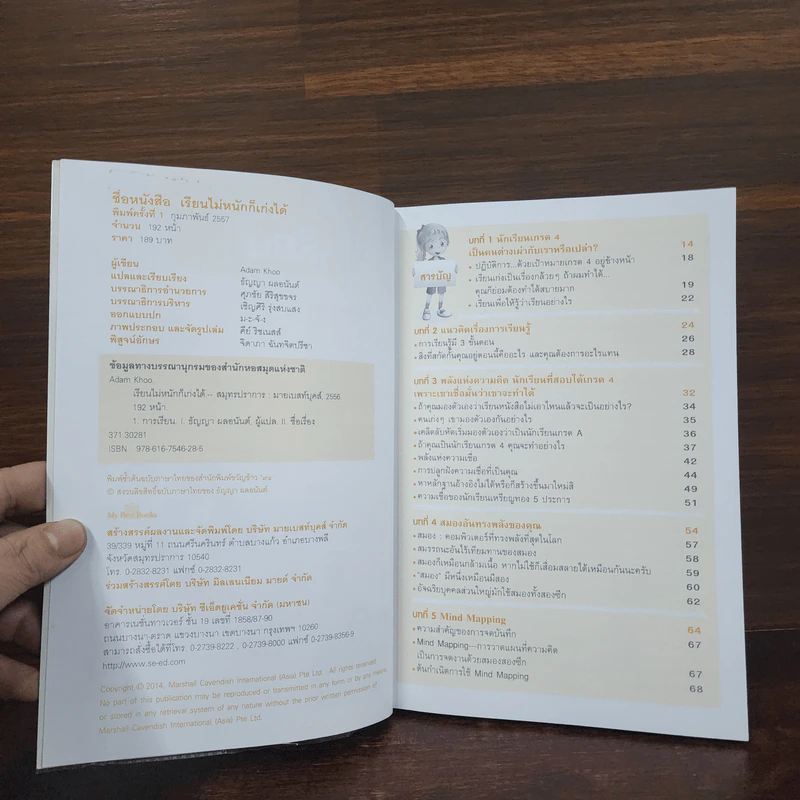 ชื่อหนังสือ เรียนไม่หนักก็เก่งได้
พิมพ์ครั้งที่ 1 กุมภาพันธ์ 2557
จำนวน 192 หน้า
ราคา 189 บาท
ผู้เขียน Adam Khoo
แปลและเรียบเรียง ธัญญา ผลอนันต์
บรรณาธิการอำนวยการ ศุภชัย สีริสุขขจร
บรรณาธิการบริหาร เชิญศิริ รุ่งสบแสง
ออกแบบปก ม-ะ-จั-ง
ภาพประกอบ และจัดรูปเล่ม คีย์ ริชเนสส์
พิสูจน์อักษร จิดาภา อันทจิตปรีชา
ข้อมูลทางบรรณานุกรมของสำนักหอสมุดแห่งชาติ
Adam Khoo.
เรียนไม่หนักก็เก่งได้.-- สมุทรปราการ : มายเบสท์บุคส์, 2556
192 หน้า.
1. การเรียน. I. ธัญญา ผลอนันต์, ผู้แปล. II. ชื่อเรื่อง
371.30281
ISBN 978-616-7546-28-5
พิมพ์ซ้ำต้นฉบับภาษาไทยของสำนักพิมพ์ขวัญข้าว
© สงวนลิขสิทธิ์ฉบับภาษาไทยของ ธัญญา ผลอนันต์
My Best Books
สร้างสรรค์ผลงานและจัดพิมพ์โดย บริษัท มายเบสท์บุคส์ จำกัด
39/339 หมู่ที่ 11 ถนนศรีนครินทร์ ตำบลบางแก้ว อำเภอบางพลี
จังหวัดสมุทรปราการ 10540
โทร. 0-2832-8231 แฟกซ์ 0-2832-8231
ร่วมสร้างสรรค์โดย บริษัท มิลเลนเนียม มายด์ จำกัด
จัดจำหน่ายโดย บริษัท ซีเอ็ดยูเคชั่น จำกัด (มหาชน)
อาคารเนชั่นทาวเวอร์ ชั้น 19 เลขที่ 1858/87-90
ถนนบางนา-ตราด แขวงบางนา เขตบางนา กรุงเทพฯ 10260
สามารถสั่งซื้อได้ที่โทร. 0-2739-8222 , 0-2739-8000 แฟกซ์ 0-2739-8356-9
http://www.se-ed.com
Copyright © 2014, Marshall Cavendish International (Asia) Pte Ltd.. All rights reserved.
No part of this publication may be reproduced or transmitted in any form or by any means
or stored in any retrieval system of any nature without the prior written permission of
Marshall Cavendish International (Asia) Pte Ltd.
สารบัญ
บทที่ 1 นักเรียนเกรด 4
เป็นคนต่างเผ่ากับเราหรือเปล่า? 14
• ปฏิบัติการ...ด้วยเป้าหมายเกรด 4 อยู่ข้างหน้า 18
• เรียนเก่งเป็นเรื่องกล้วยๆ ถ้าผมทำได้...
คุณก็ย่อมต้องทำได้สบายมาก 19
• เรียนเพื่อให้รู้ว่าเรียนอย่างไร 22
บทที่ 2 แนวคิดเรื่องการเรียนรู้ 24
• การเรียนรู้มี 3 ขั้นตอน 26
• สิ่งที่สกัดกั้นคุณอยู่ตอนนี้คืออะไร และคุณต้องการอะไรแทน 28
บทที่ 3 พลังแห่งความคิด นักเรียนที่สอบได้เกรด 4
เพราะเขาเชื่อมั่นว่าเขาจะทำได้ 32
• ถ้าคุณมองตัวเองว่าเรียนหนังสือไม่เอาไหนแล้วจะเป็นอย่างไร? 34
• คนเก่งๆ เขามองตัวเองกันอย่างไร 35
• เคล็ดลับหัดเริ่มมองตัวเองว่าเป็นนักเรียนเกรด A 36
• ถ้าคุณเป็นนักเรียนเกรด 4 คุณจะทำอย่างไร 37
• พลังแห่งความเชื่อ 42
• การปลูกฝังความเชื่อที่เป็นคุณ 44
• หาหลักฐานอ้างอิงไม่ได้หรือก็สร้างขึ้นมาใหม่สิ 49
• ความเชื่อของนักเรียนเหรียญทอง 5 ประการ 51
บทที่ 4 สมองอันทรงพลังของคุณ 54
• สมอง : คอมพิวเตอร์ที่ทรงพลังที่สุดในโลก 57
• สมรรถนะอันไร้เทียมทานของสมอง 58
• สมองก็เหมือนกล้ามเนื้อ หากไม่ใช้ก็เสื่อมสลายได้เหมือนกันนะครับ 59
• "สมอง" มีหนึ่งเหมือนมีสอง 60
• อัจฉริยบุคคลส่วนใหญ่มักใช้สมองทั้งสองซีก 62
บทที่ 5 Mind Mapping 64
• ความสำคัญของการจดบันทึก 67
• Mind Mapping---การวาดแผนที่ความคิด
เป็นการจดงานด้วยสมองสองซีก 67
• ต้นกำเนิดการใช้ Mind Mapping 68